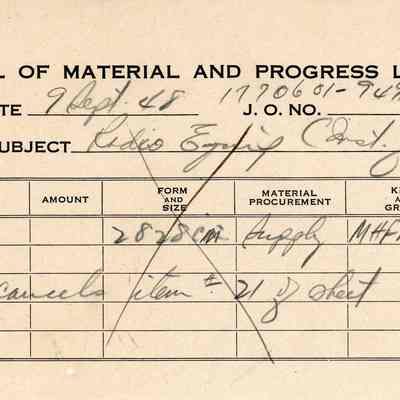 L OF MATERIAL AND PROGRESS L
ATE 9 Sept. 48 J. O. NO. 1770601-949
SUBJECT Radio Equip Const.
AMOUNT FORM AND SIZE MATERIAL PROCUREMENT
2828 cm Supply
cancels item # 21 of sheet